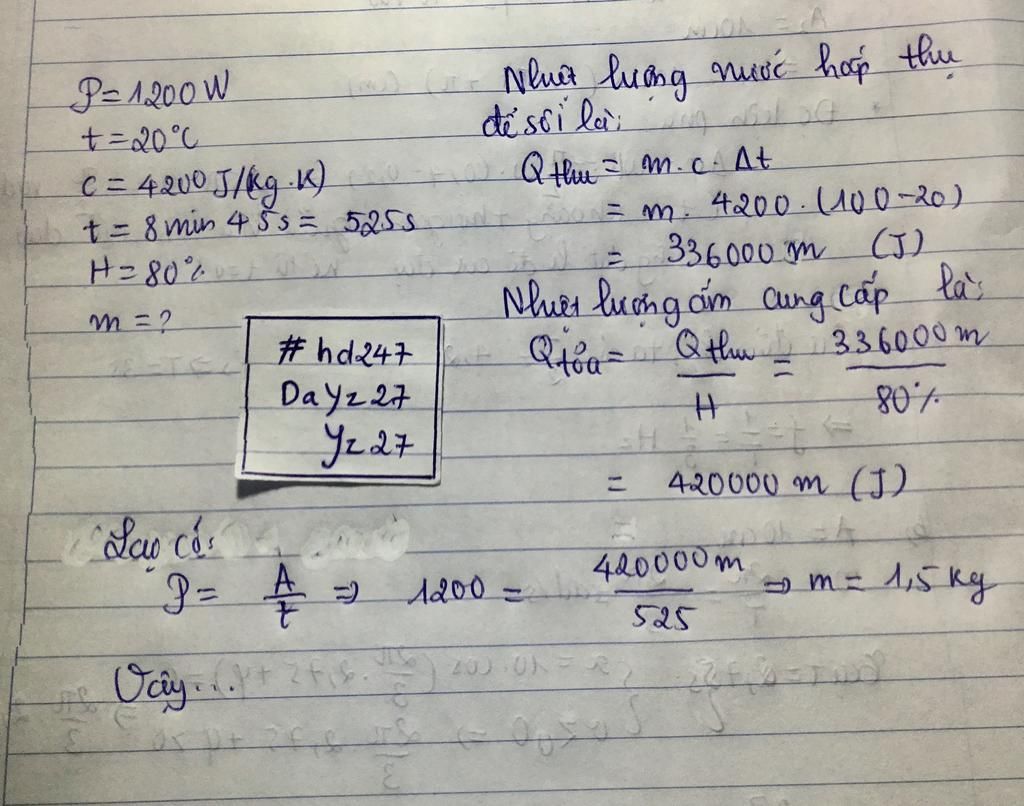 P = 1200 W
t = 20°C
c = 4200 J/(kg.K)
t = 8 min 45s = 525s
H = 80%
m = ?
#hd247
DaYz27
Yz27
Nhiệt lượng nước hấp thụ
để sôi là:
Q thu = m.c.Δt
= m. 4200. (100-20)
= 336000 m (J)
Nhiệt lượng ấm cung cấp là:
Q tỏa = Q thu / H = 336000 m / 80%
= 420000 m (J)
Lại có:
P = A / t => 1200 = 420000 m / 525 => m = 1,5 kg
Vậy...